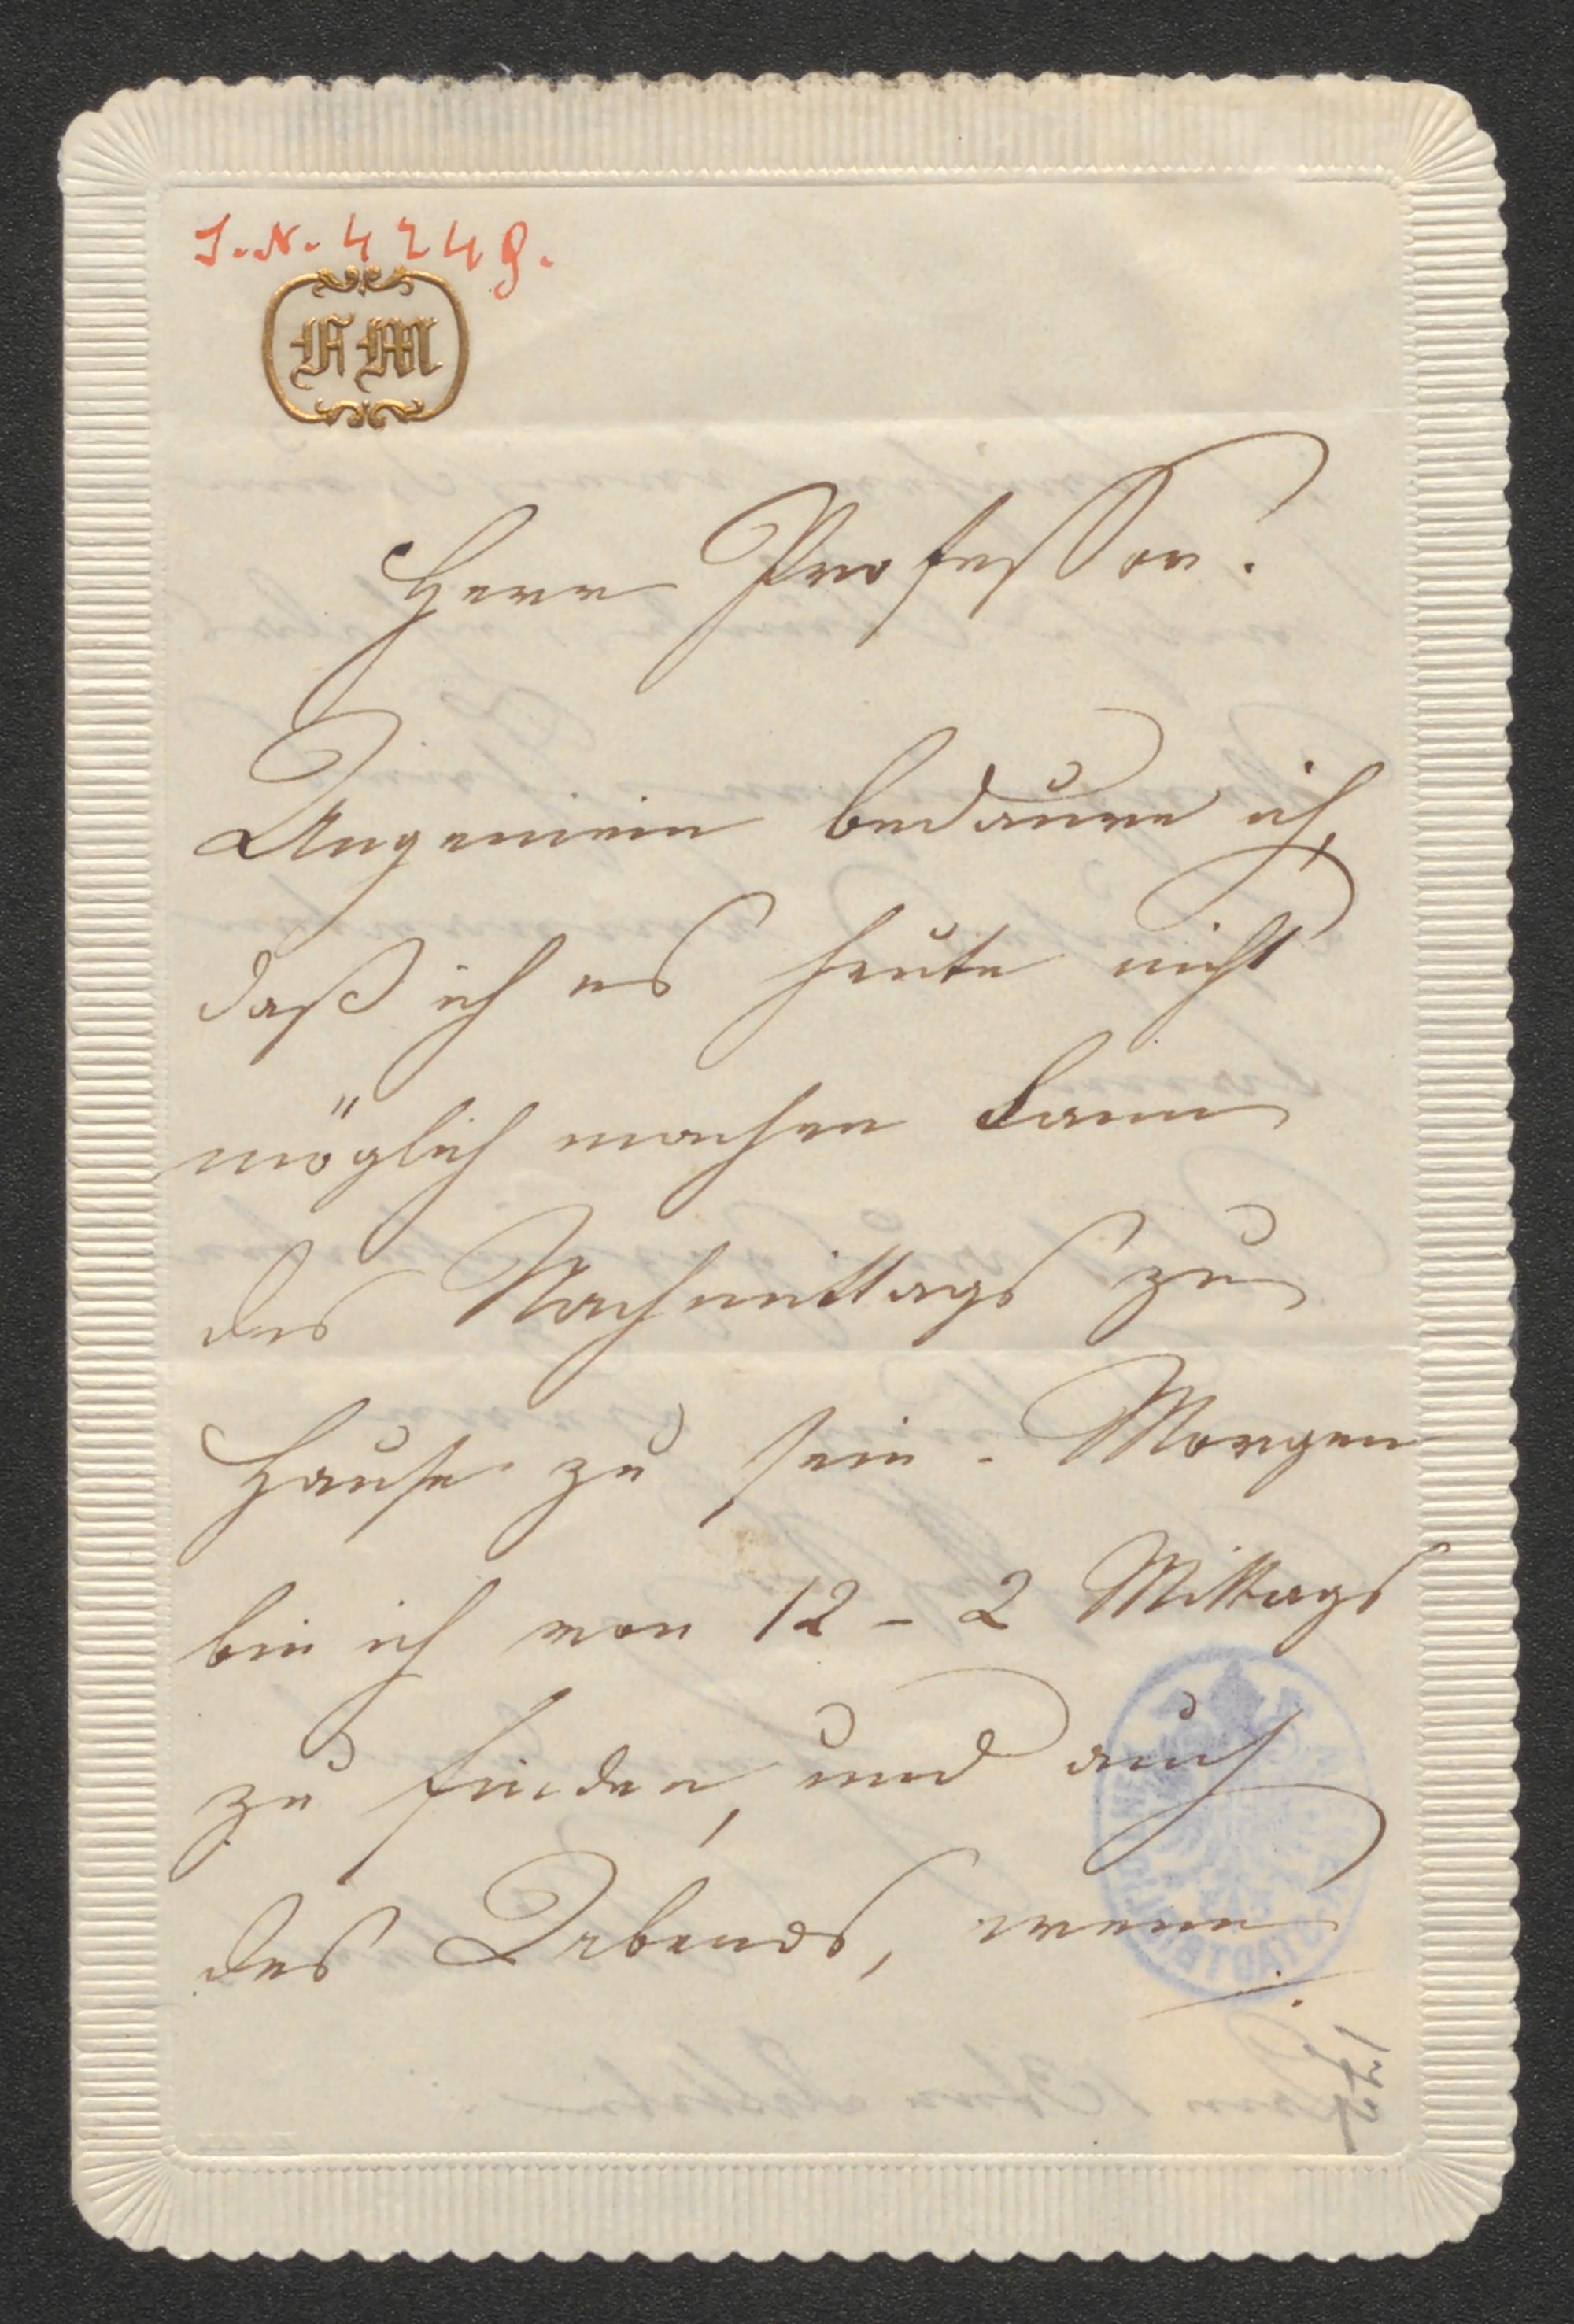 J.N. 4248.
FM
Herr Professor!
Ungemein bedaure ich,
daß ich es heute nicht
möglich machen kann
des Nachmittags zu
Hause zu sein. Morgen
bin ich von 12 - 2 Mittags
zu finden, und auch
des Abends, wenn
./.